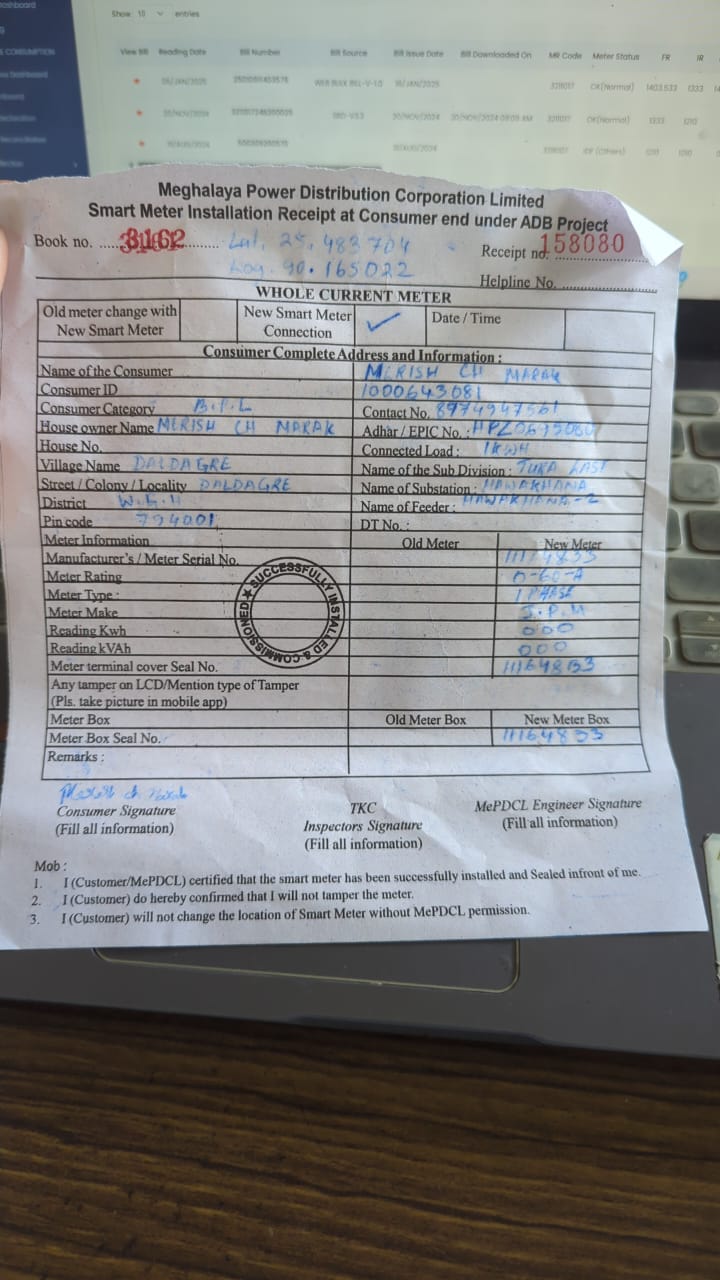 Show 10 entries
View Bill Reading Date Bill Number Bill Source Bill Issue Date Bill Downloaded On MR Code Meter Status FR IR
OK(Normal) 1403.533 1333
30/NOV/2024 OK(Normal) 1333 1210
Meghalaya Power Distribution Corporation Limited
Smart Meter Installation Receipt at Consumer end under ADB Project
Book no. ..... 3162 ........ Lat. 25.483704 Receipt no. 158080
Log. 90.165022
Helpline No. ........................
WHOLE CURRENT METER
Old meter change with New Smart Meter Connection ✓ Date / Time
New Smart Meter
Consumer Complete Address and Information :
Name of the Consumer MERISH CH MARAK
Consumer ID 1000643081
Consumer Category B.P.L Contact No. 8974947561
House owner Name MERISH CH MARAK Adhar / EPIC No. :
House No. Connected Load : 1KWH
Village Name DALDAGRE Name of the Sub Division : TURA EAST
Street / Colony / Locality DALDAGRE Name of Substation : HAWAKHANA
District W.G.H Name of Feeder : HAWAKHANA-2
Pin code 794001 DT No. :
Meter Information Old Meter New Meter
Manufacturer's / Meter Serial No.
Meter Rating 0-60-A
Meter Type : 1 PHASE
Meter Make J.P.M
Reading Kwh 000
Reading kVAh 000
Meter terminal cover Seal No. 11164833
SUCCESSFULLY INSTALLED & COMMISSIONED
Any tamper on LCD/Mention type of Tamper
(Pls. take picture in mobile app)
Meter Box Old Meter Box New Meter Box
Meter Box Seal No. 11164833
Remarks :
Consumer Signature TKC MePDCL Engineer Signature
(Fill all information) Inspectors Signature (Fill all information)
(Fill all information)
Mob :
1. I (Customer/MePDCL) certified that the smart meter has been successfully installed and Sealed infront of me.
2. I (Customer) do hereby confirmed that I will not tamper the meter.
3. I (Customer) will not change the location of Smart Meter without MePDCL permission.